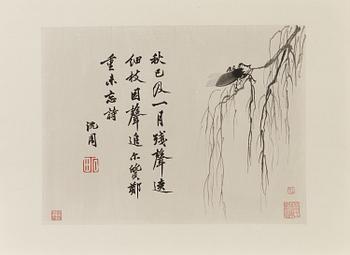 秋已及一月残聲遶
細枝因聲追尔質鄭
重未忘詩
沈周